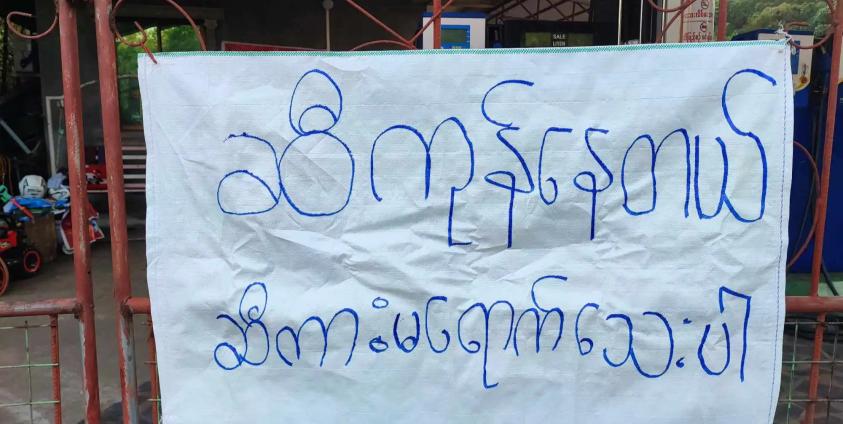 SALE
LITER
ဆီကုန်နေတယ်
ဆီကားမရောက်သေးပါ